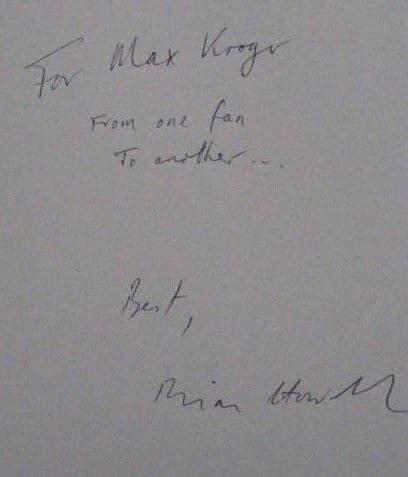 For Max Kroger
From one fan
To another...
Best,
Brian Howell